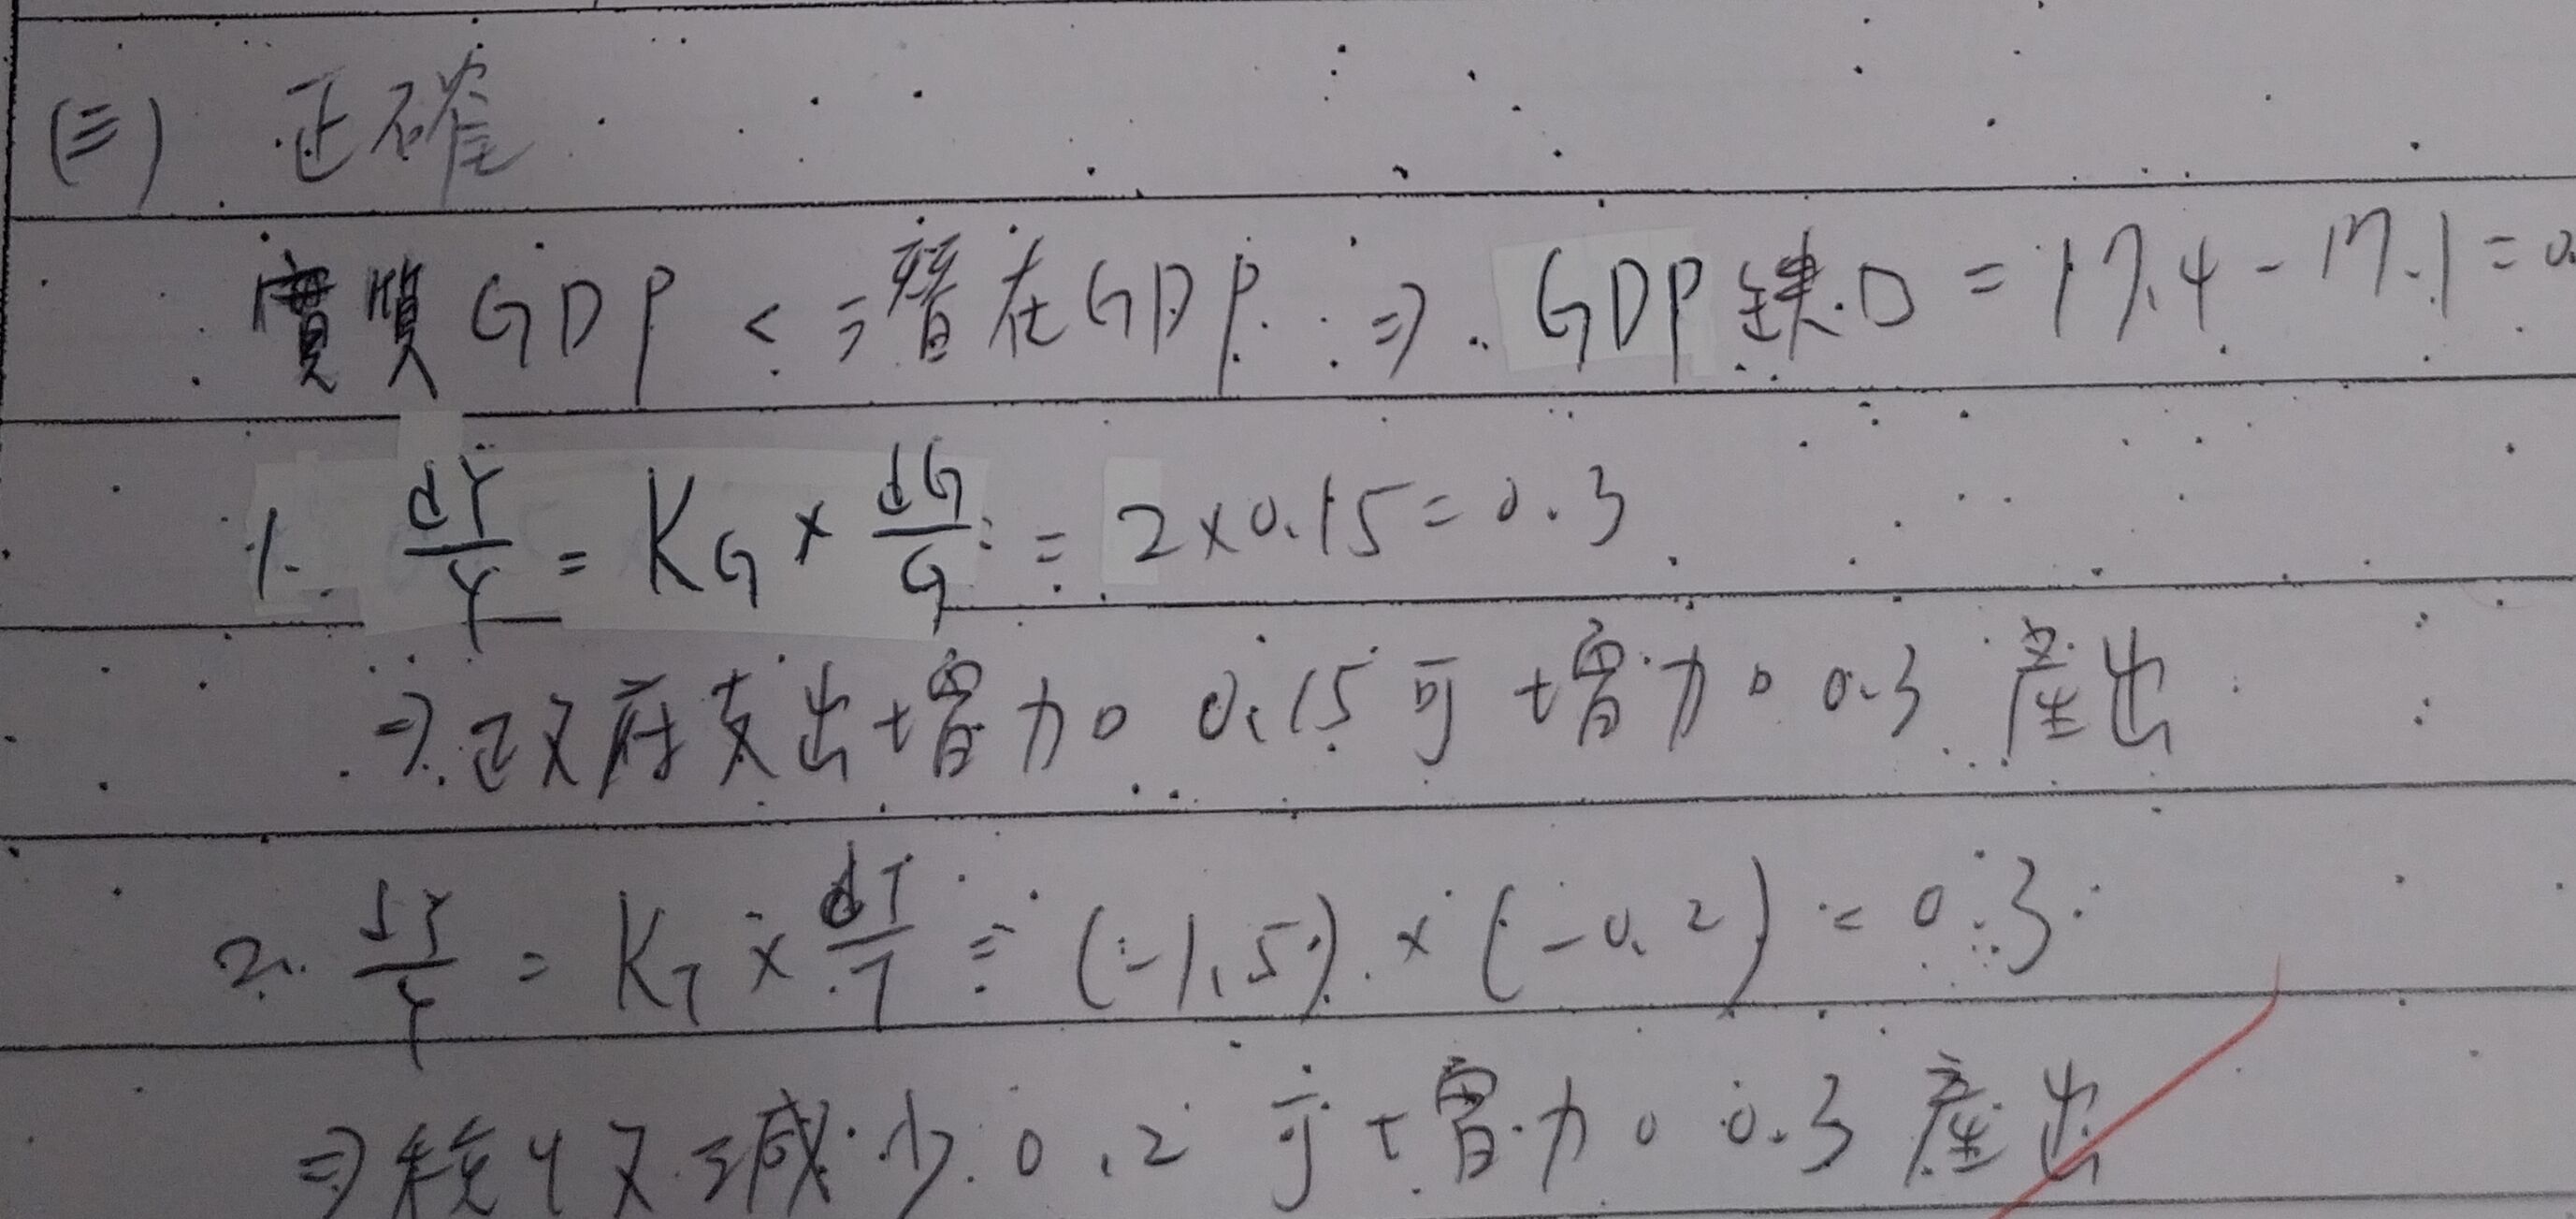 (三) 正確
實質GDP < 潛在GDP ⇒ GDP缺口 = 17.4 - 17.1 = 0.
1. dY/Y = KG × dG/G = 2 × 0.15 = 0.3
⇒ 政府支出增加 0.15 可增加 0.3 產出
2. dY/Y = KT × dT/T = (-1.5) × (-0.2) = 0.3
⇒ 稅收減少 0.2 可增加 0.3 產出